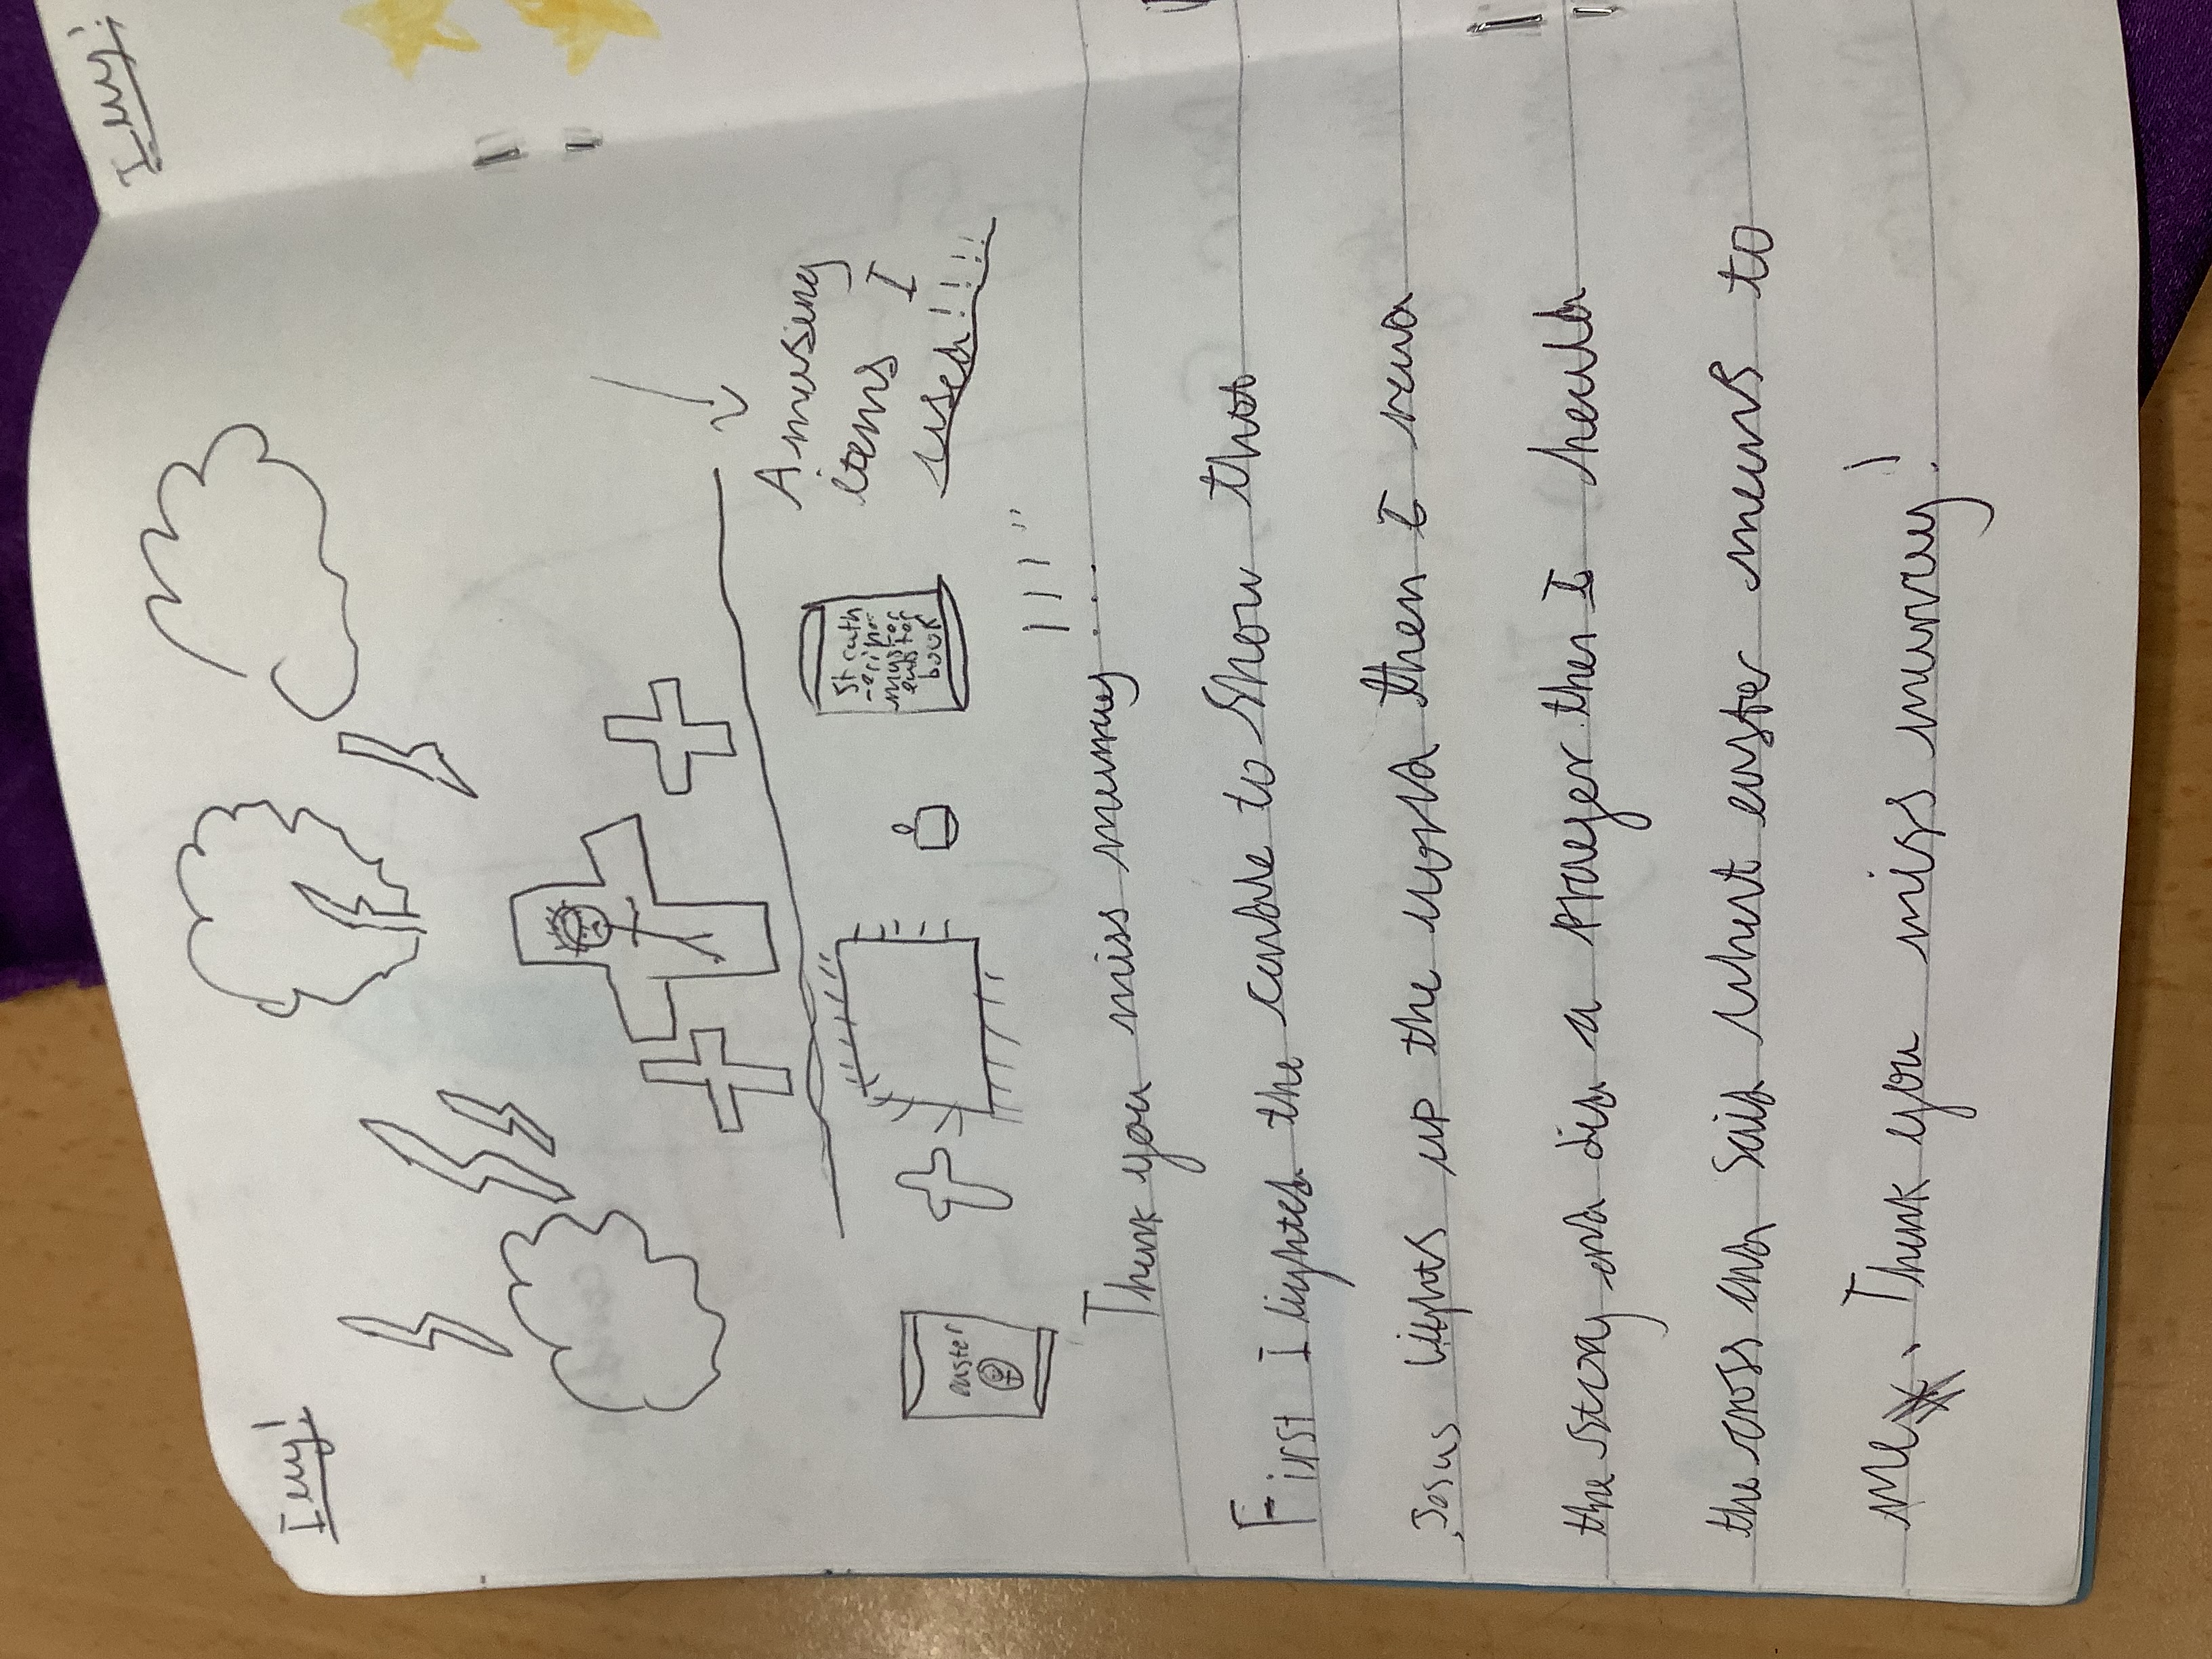 easter
St cath
easter
book
Amaseing
items I
used!!!!
Thank you miss murray...!!!!
First I lighted the candle to show that
Jesus lights up the world then I read
the story and did a prayer then I heald
the cross and said what easter means to
me. Thank you miss murray!